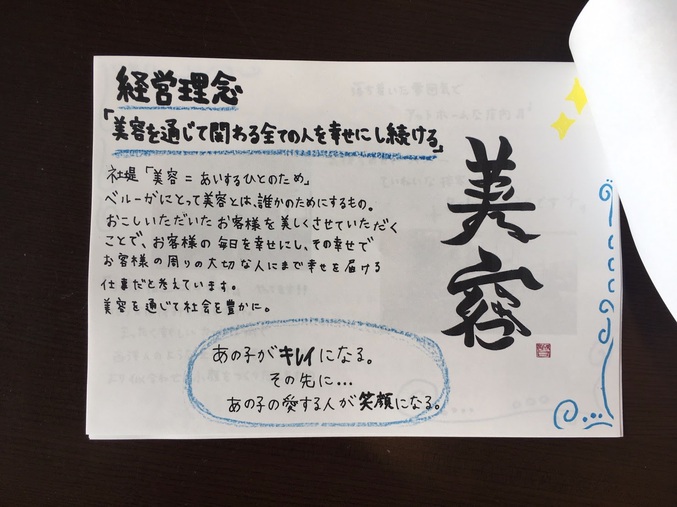 経営理念
「美容を通じて関わる全ての人を幸せにし続ける」
社是「美容=あいするひとのため」
ベルーガにとって美容とは、誰かのためにするもの。
おこしいただいたお客様を美しくさせていただく
ことで、お客様の毎日を幸せにし、その幸せで
お客様の周りの大切な人にまで幸せを届ける
仕事だと考えています。
美容を通じて社会を豊かに。
あの子がキレイになる。
その先に...
あの子の愛する人が笑顔になる。
美容